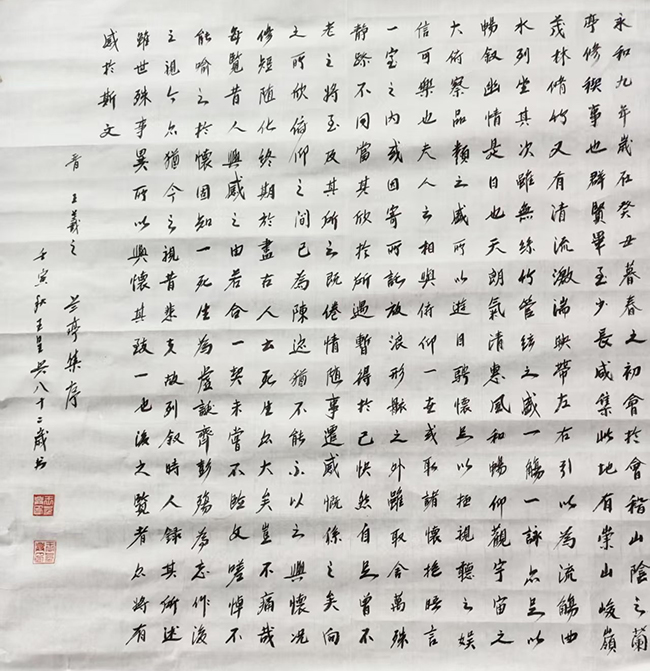 永和九年歲在癸丑暮春之初會於會稽山陰之蘭
亭修禊事也群賢畢至少長咸集此地有崇山峻嶺
茂林脩竹又有清流激湍映帶左右引以為流觴曲
水列坐其次雖無絲竹管絃之盛一觴一詠亦足以
暢叙幽情是日也天朗氣清惠風和暢仰觀宇宙之
大俯察品類之盛所以遊目騁懷足以極視聽之娛
信可樂也夫人之相與俯仰一世或取諸懷抱晤言
一室之內或因寄所託放浪形骸之外雖取舍萬殊
靜躁不同當其欣於所遇暫得於己快然自足曾不
老之將至及其所之既倦情隨事遷感慨係之矣向
之所欣俯仰之間已為陳迹猶不能不以之興懷況
修短随化終期於盡古人云死生亦大矣豈不痛哉
每覽昔人興感之由若合一契未嘗不臨文嗟悼不
能喻之於懷固知一死生為虛誕齊彭殤為妄作後
之視今亦猶今之視昔悲夫故列叙時人録其所述
雖世殊事異所以興懷其致一也後之覽者亦將有
感於斯文
晋 王羲之 兰亭集序
壬寅秋王 八十二歲书